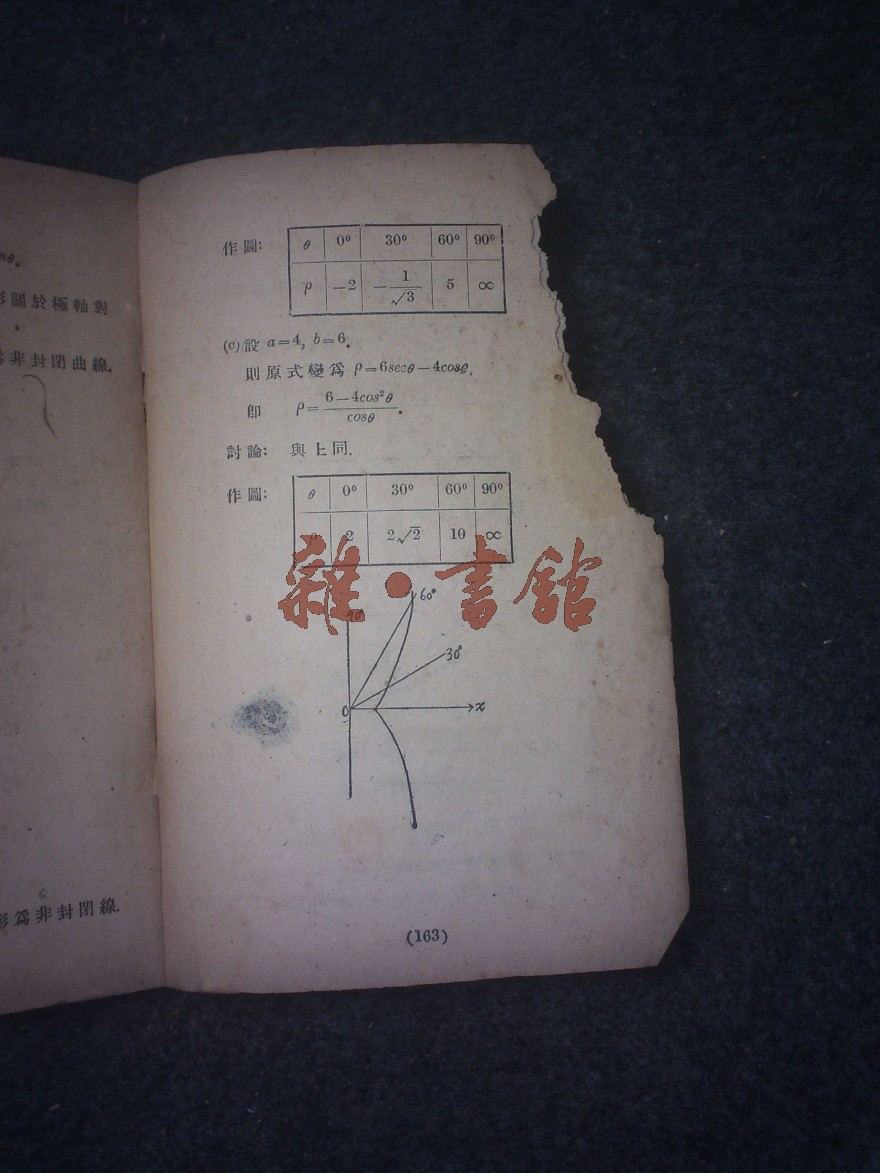 θ.
關於極軸對
非封閉曲線.
爲非封閉線.
作圖: θ 0° 30° 60° 90°
ρ −2 −1/√3 5 ∞
(c) 設 a=4, b=6.
則原式變爲 ρ=6secθ−4cosθ.
卽 ρ=(6−4cos²θ)/cosθ.
討論: 與上同.
作圖: θ 0° 30° 60° 90°
ρ 2 2√2 10 ∞
雜·書館
60°
90°
30°
O x
(163)